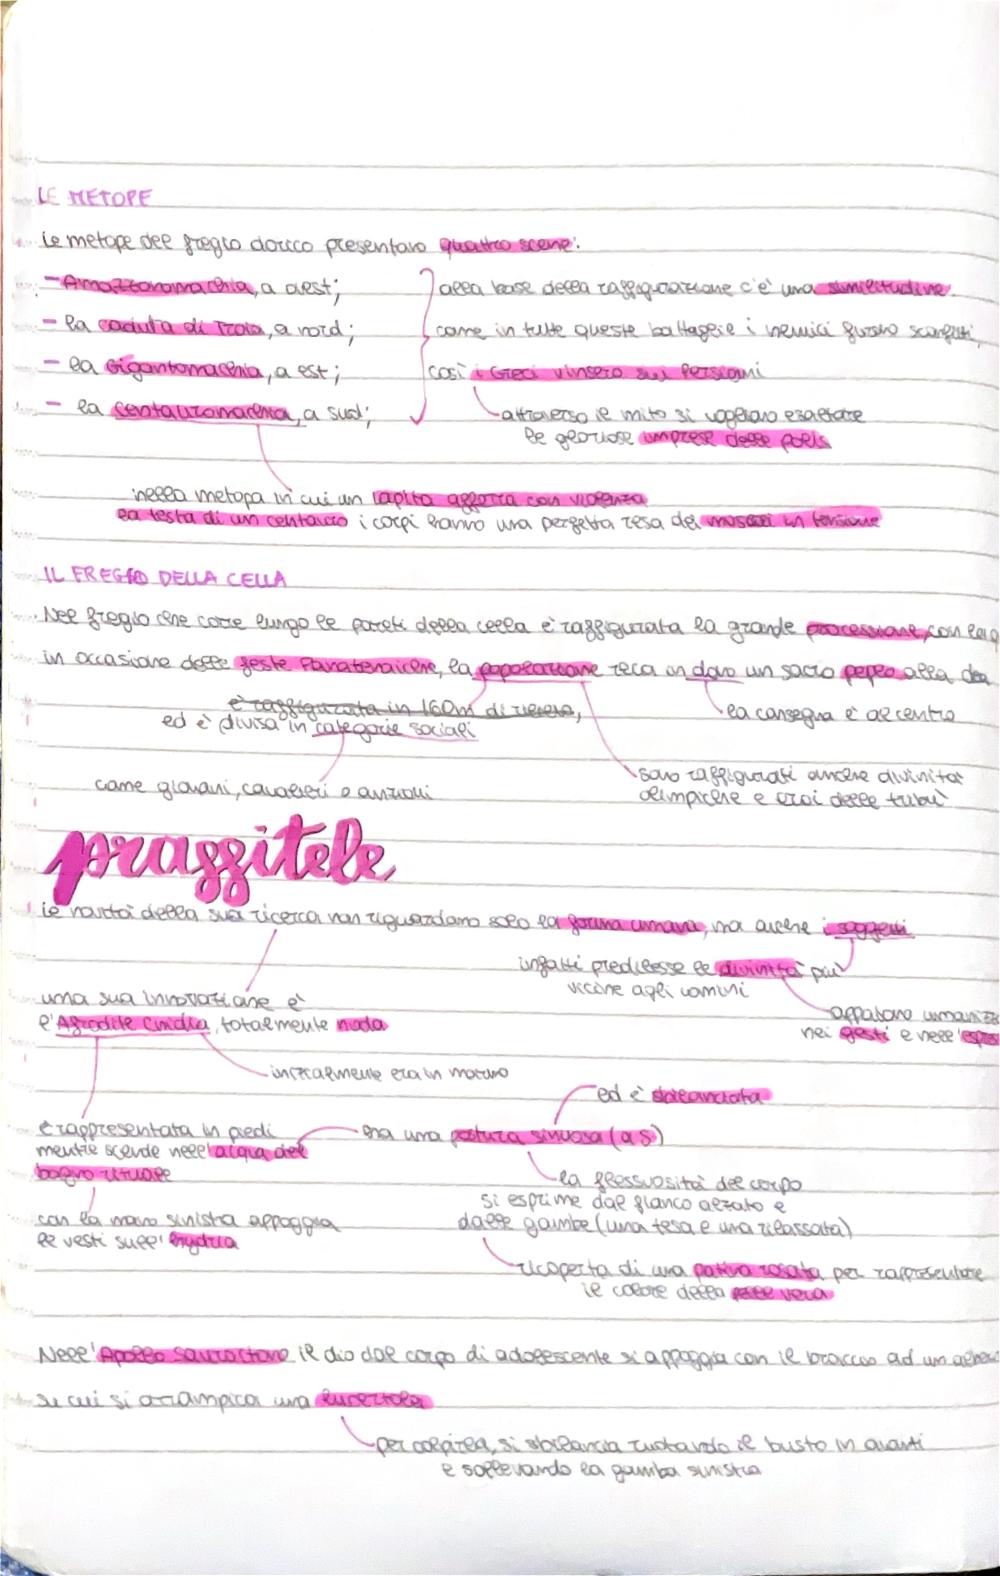 LE METOPE
Le metope del fregio dorico presentano quattro scene:
- Amazzonomachia, a ovest;
- la caduta di Troia, a nord;
- la Gigantomachia, a est;
- la centauromachia, a sud;
alla base della raffigurazione c'è una similitudine
come in tutte queste battaglie i nemici furono sconfitti,
così i Greci vinsero sui Persiani
attraverso il mito si vogliono esaltare
le gloriose imprese delle poleis
nella metopa in cui un lapita afferra con violenza
la testa di un centauro i corpi hanno una perfetta resa dei muscoli in tensione
IL FREGIO DELLA CELLA
Nel fregio che corre lungo le pareti della cella è raffigurata la grande processione, con
in occasione delle feste Panatenaiche, la popolazione reca in dono un sacro peplo alla dea
è raffigurata in 160m di rilievo,
ed è divisa in categorie sociali
la consegna è al centro
come giovani, cavalieri o anziani
sono raffigurati anche divinità
olimpiche e eroi delle tribù
prassitele
le novità della sua ricerca non riguardano solo la forma umana, ma anche i soggetti
infatti predilesse le divinità più
vicine agli uomini
appaiono
nei gesti e nell'
una sua innovazione è
l'Afrodite Cnidia, totalmente nuda
inizialmente era in marmo
ed è sbilanciata
è rappresentata in piedi
mentre scende nell'acqua del
bagno rituale
ha una postura sinuosa (a S)
la flessuosità del corpo
si esprime dal fianco alzato e
dalle gambe (una tesa e una rilassata)
con la mano sinistra appoggia
le vesti sull'hydria
ricoperta di una patina rosata per rappresentare
il colore della pelle vera
Nell'Apollo Sauroctono il dio dal corpo di adolescente si appoggia con il braccio ad un albero
su cui si arrampica una lucertola
per colpirla, si sbilancia ruotando il busto in avanti
e sollevando la gamba sinistra